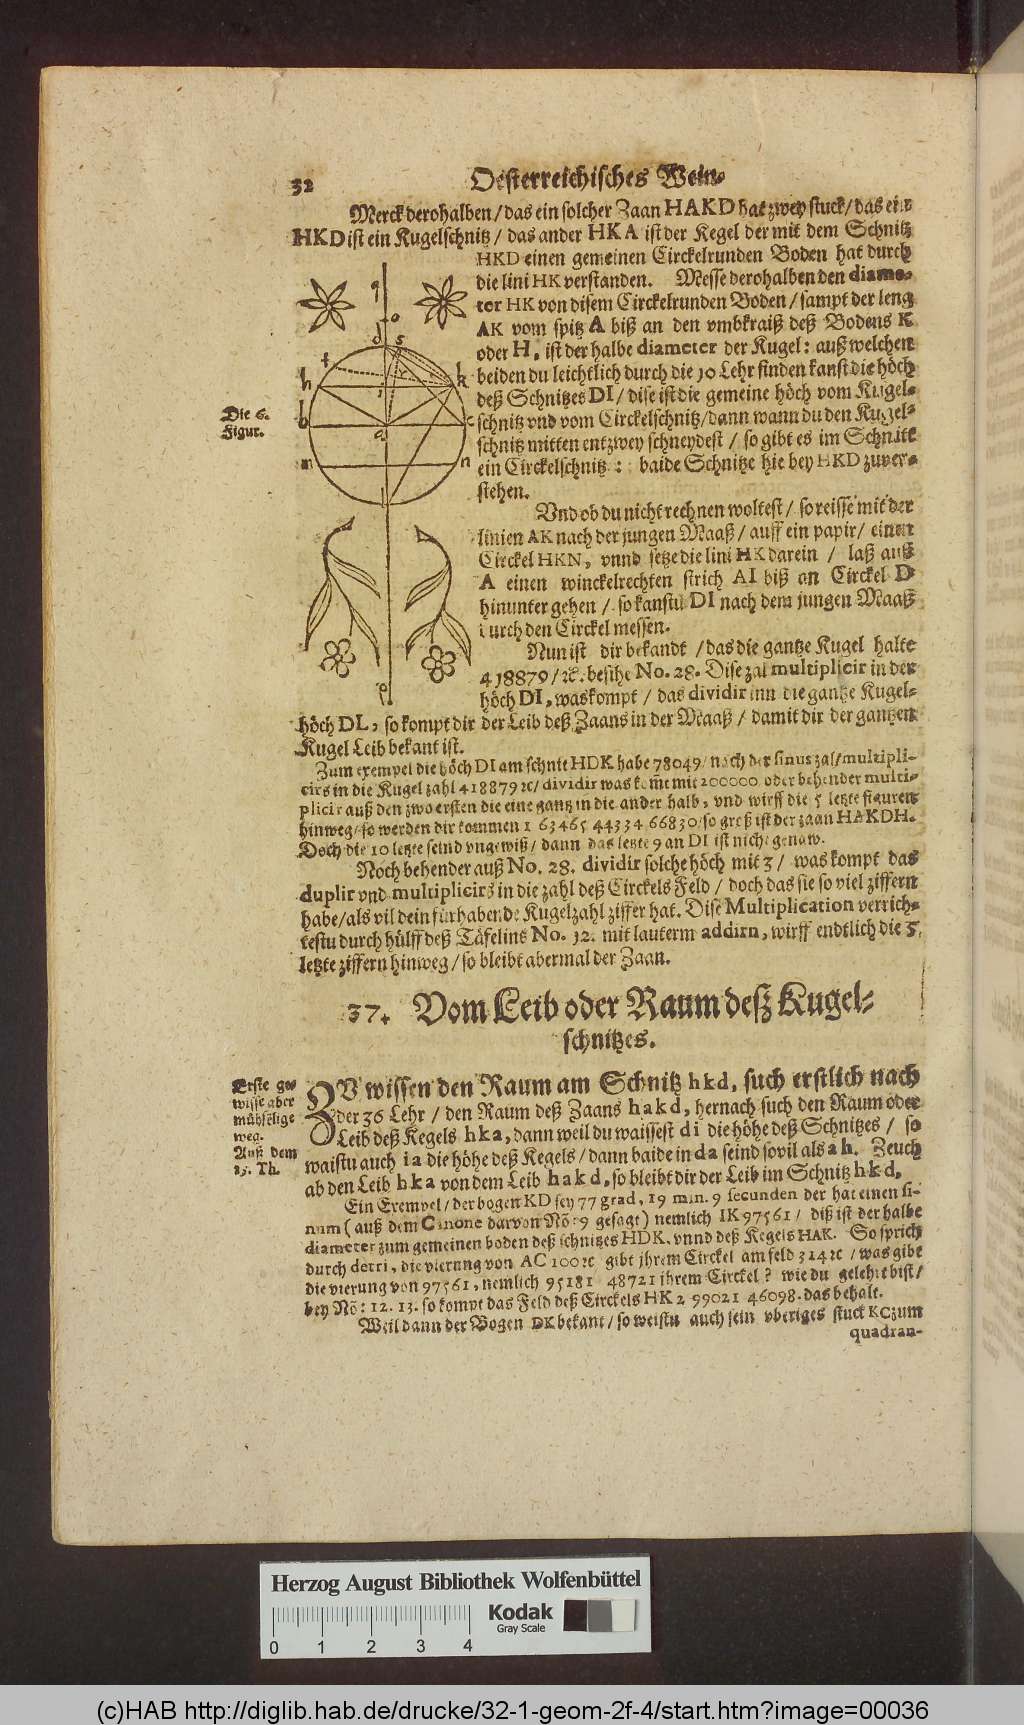 32 Oesterreichisches Wein-
Merck derohalben / das ein solcher Zaan HAKD hat zwey stuck / das ein
HKD ist ein Kugelschnitz / das ander HKA ist der Kegel der mit dem Schnitz
HKD einen gemeinen Circkelrunden Boden hat durch
die lini HK verstanden. Messe derohalben den diame-
ter HK von disem Circkelrunden Boden / sampt der leng
AK vom spitz A biß an den vmbkraiß deß Bodens K
oder H, ist der halbe diameter der Kugel: auß welchen
beiden du leichtlich durch die 10 Lehr finden kanst die höch
deß Schnitzes DI / dise ist die gemeine höch vom Kugel-
schnitz vnd vom Circkelschnitz / dann wann du den Kugel-
schnitz mitten entzwey schneydest / so gibt es im Schnitt
ein Circkelschnitz : baide Schnitze hie bey HKD zuver-
stehen.
Die 6.
Figur.
q
o
d
s
f
h
k
r
i
b
a
c
m
n
l
p
Vnd ob du nicht rechnen woltest / so reisse mit der
linien AK nach der jungen Maaß / auff ein papir / einen
Circkel HKN, vnnd setze die lini HK darein / laß auß
A einen winckelrechten strich AI biß an Circkel D
hinunter gehen / so kanstu DI nach dem jungen Maaß
durch den Circkel messen.
Nun ist dir bekandt / das die gantze Kugel halte
418879 / ꝛc. besihe No. 28. Dise zal multiplicir in der
höch DI, was kompt / das dividir inn die gantze Kugel-
höch DL, so kompt dir der Leib deß Zaans in der Maaß / damit dir der gantzen
Kugel Leib bekant ist.
Zum exempel die höch DI am schnit HDK habe 78049 nach der sinus zal / multipli-
cirs in die Kugel zahl 418879 ꝛc / dividir was kom̃t mit 200000 oder behender multi-
plicir auß den zwo ersten die eine gantz in die ander halb, vnd wirff die 5 letzte figuren
hinweg / so werden dir kommen 1 63465 44334 66830 / so groß ist der zaan HAKDH.
Doch die 10 letzte seind vngewiß / dann das letzte 9 an DI ist nicht genaw.
Noch behender auß No. 28. dividir solche höch mit 3 / was kompt das
duplir vnd multiplicirs in die zahl deß Circkels Feld / doch das sie so viel ziffern
habe / als vil dein fürhabende Kugelzahl ziffer hat. Dise Multiplication verrich-
testu durch hülff deß Täfelins No. 12. mit lauterm addirn, wirff endtlich die 5.
letzte ziffern hinweg / so bleibt abermal der Zaan.
37. Vom Leib oder Raum deß Kugel-
schnitzes.
Erste ge-
wisse aber
mühselige
weg.
Auß dem
15. Th.
ZV wissen den Raum am Schnitz hkd, such erstlich nach
der 36 Lehr / den Raum deß Zaans hakd, hernach such den Raum oder
Leib deß Kegels hka, dann weil du waissest di die höhe deß Schnitzes / so
waistu auch ia die höhe deß Kegels / dann baide in da seind sovil als ah. Zeuch
ab den Leib hka von dem Leib hakd, so bleibt dir der Leib im Schnitz hkd.
Ein Exempel / der bogen KD sey 77 grad, 19 min. 9 secunden der hat einen si-
num (auß dem Canone darvon Nõ: 9 gesagt) nemlich IK 97561 / diß ist der halbe
diameter zum gemeinen boden deß schnitzes HDK, vnnd deß Kegels HAK. So sprich
durch detri, die vierung von AC 100 ꝛc gibt jhrem Circkel am feld 314 ꝛc / was gibt
die vierung von 97561, nemlich 95181 48721 jhrem Circkel? wie du gelehrt bist /
bey Nõ: 12. 13. so kompt das Feld deß Circkels HK 2 99021 46098. das behalt.
Weil dann der Bogen DK bekant / so weistu auch sein vberiges stuck KC zum
quadran-
Herzog August Bibliothek Wolfenbüttel
Kodak
Gray Scale
0 1 2 3 4
(c)HAB http://diglib.hab.de/drucke/32-1-geom-2f-4/start.htm?image=00036